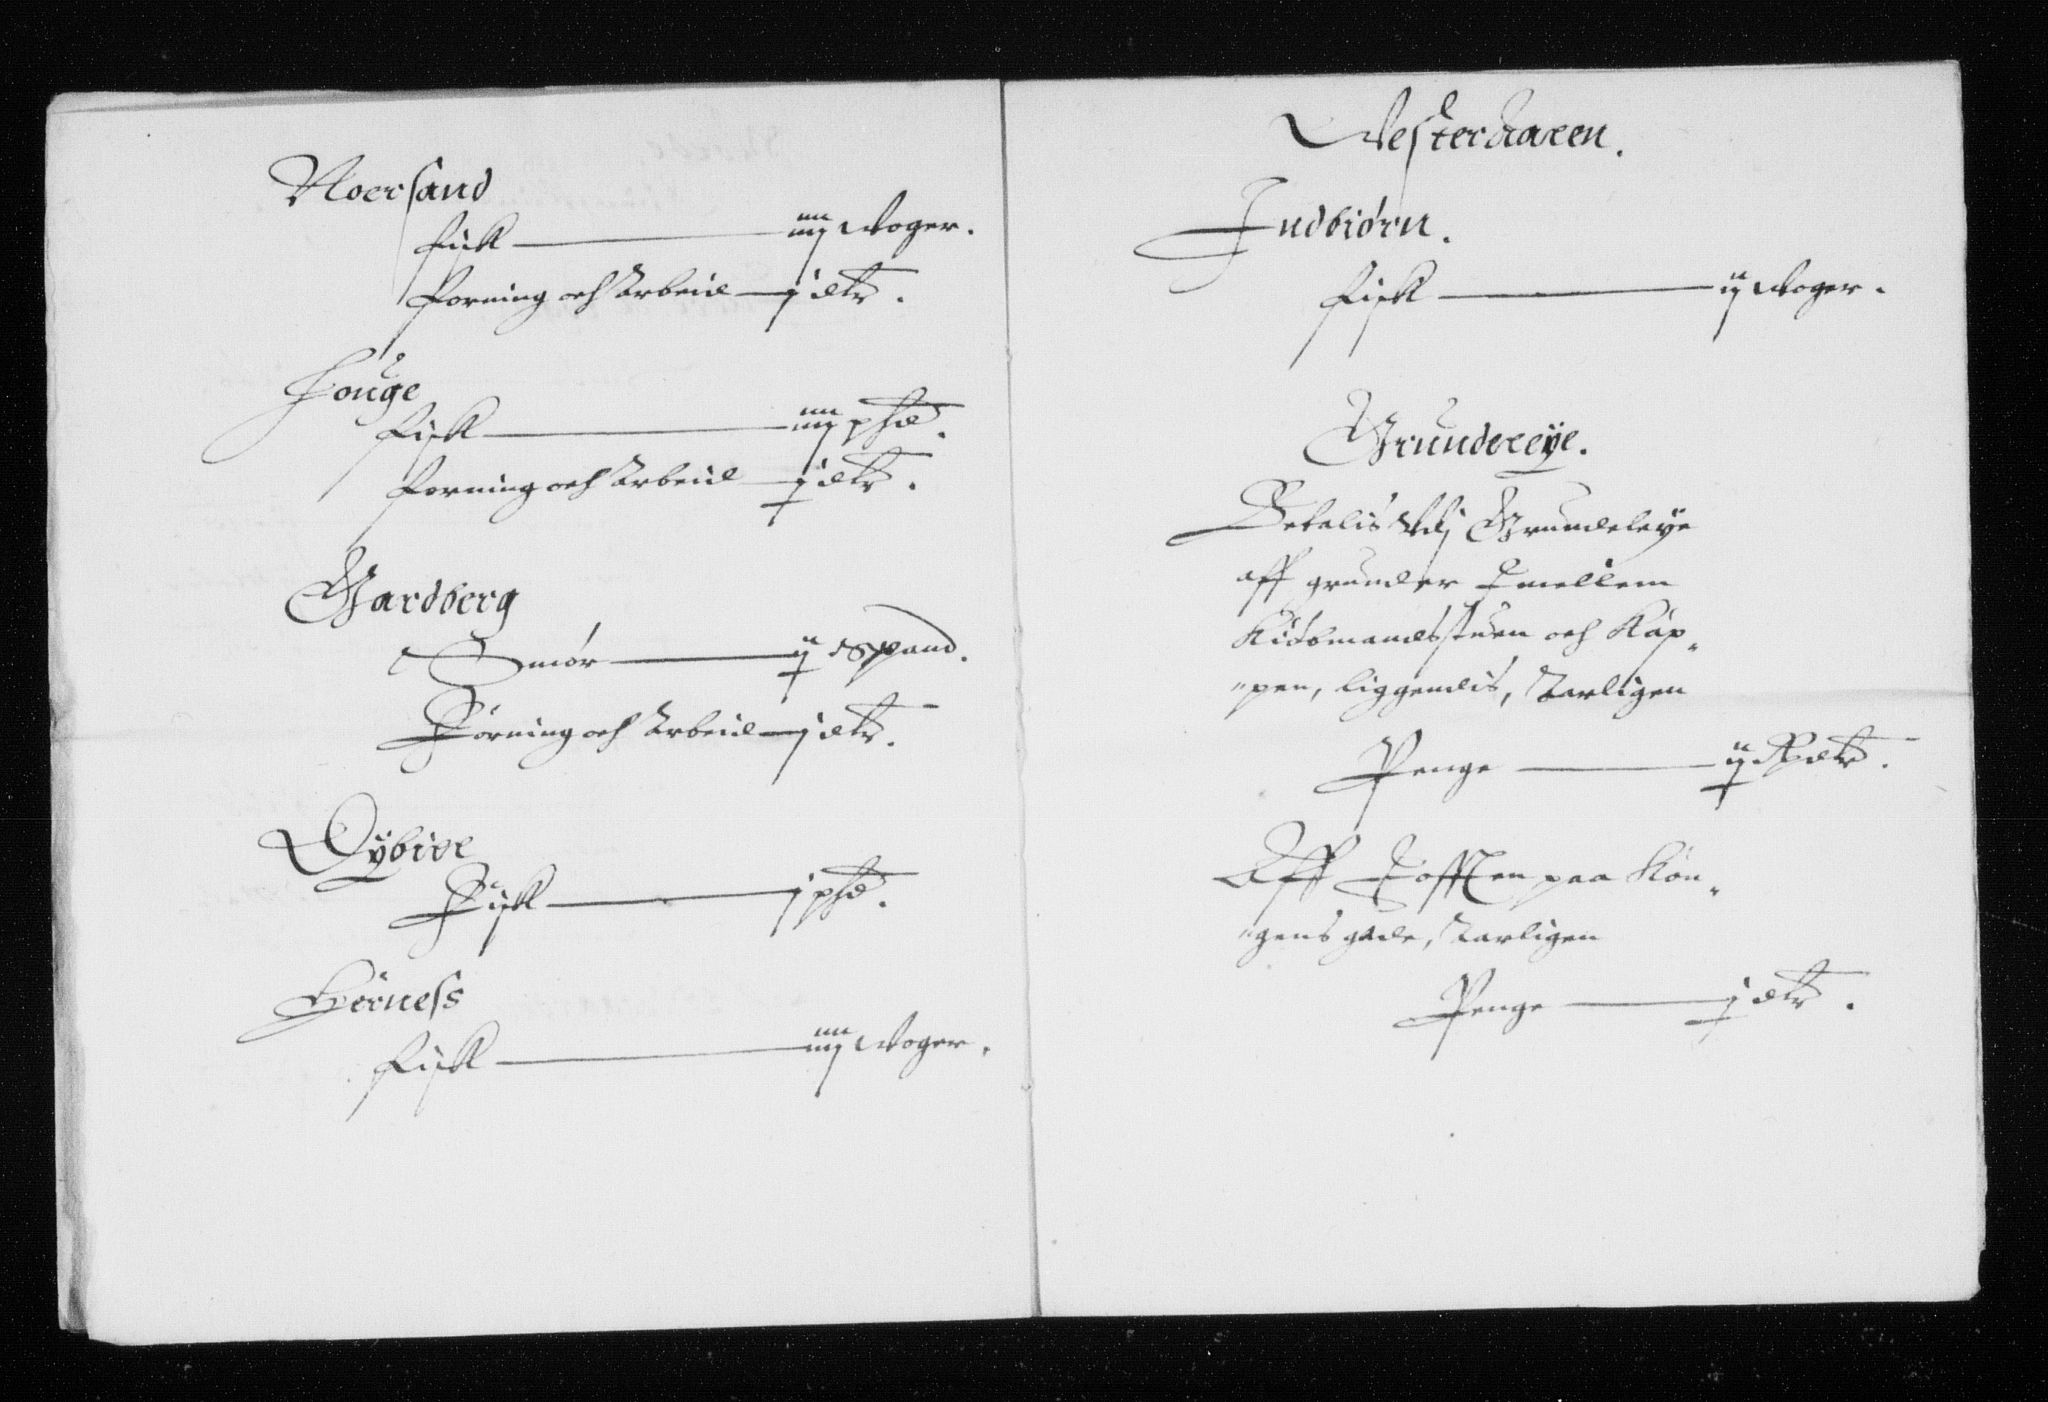 Noersand
Fisk iiij Woger.
Forning och Arbeid j dlr.
Houge
Fisk iiij phd.
Forning och Arbeid j dlr.
Gardberg
Smør ij Spand.
Forning och Arbeid j dlr.
Oybive
Fisk j phd.
Herness
Fisk iiij Woger.
Westerharen.
Indbiørn.
Fisk ij Woger.
Grundeleye.
Betalis Udj Grundeleye
aff grunder Imellem
Kiøbmandsstuen och Kap„
„pen, liggendis, Aarligen
Penge ij Rdlr.
Aff Tofften paa Kon„
„gens gade, Aarligen
Penge j dlr.